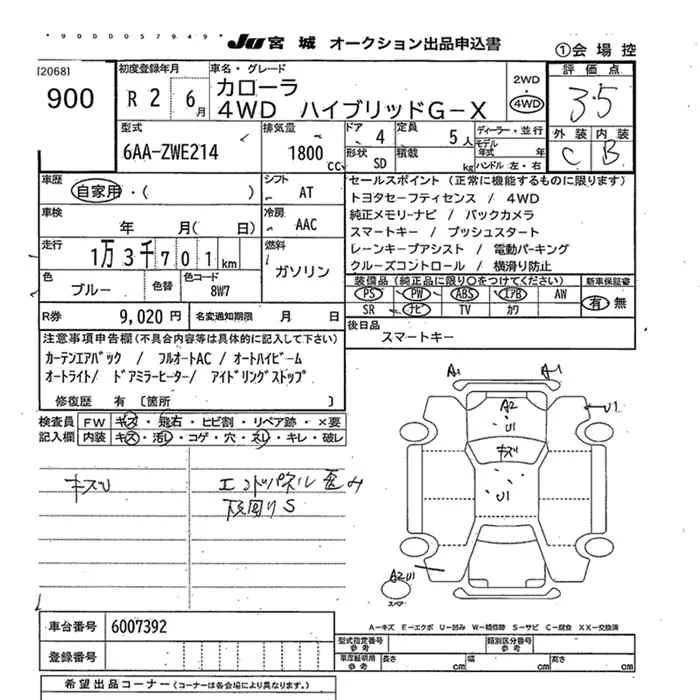 JU 宮城 オークション出品申込書
①会場控
[2068]
900
初度登録年月
R 2 6月
車名・グレード
カローラ
4WD ハイブリッドG-X
2WD
・
4WD
評価点
3.5
外装 内装
C B
型式
6AA-ZWE214
排気量
1800cc
ドア 4
定員 5人
形状 SD
積載 kg
ディーラー・並行
モデル年式 年
ハンドル 左・右
車歴
自家用・( )
シフト AT
車検
年 月( 日)
冷房 AAC
走行
1万3千701km
燃料
ガソリン
色 ブルー
色替
色コード 8W7
R券 9,020円
名変通知期限 月 日
セールスポイント (正常に機能するものに限ります)
トヨタセーフティセンス / 4WD
純正メモリーナビ / バックカメラ
スマートキー / プッシュスタート
レーンキープアシスト / 電動パーキング
クルーズコントロール / 横滑り防止
装備品 (純正品に限り○をつけてください)
新車保証書
PS PW ABS エアB AW
有・無
SR ナビ TV カワ
後日品
スマートキー
注意事項申告欄(不具合内容等は具体的に記入して下さい)
カーテンエアバック / フルオートAC / オートハイビーム
オートライト/ ドアミラーヒーター/ アイドリングストップ
修復歴 有 〔箇所 〕
検査員記入欄
FW キズ・飛石・ヒビ割・リペア跡・×要
内装 キズ・汚レ・コゲ・穴・スレ・キレ・破レ
キズU
エンドパネル歪み
下回りS
A1
A1
A2
U1
U1
キズ
U1
A2U1
スペア
A-キズ E-エクボ U-凹み W-補修跡 S-サビ C-腐食 XX-交換済
車台番号 6007392
登録番号
型式指定番号 参考
類別区分番号 参考
車庫証明用 参考
長さ cm
幅 cm
高さ cm
希望出品コーナー(コーナーは各会場により異なります。)